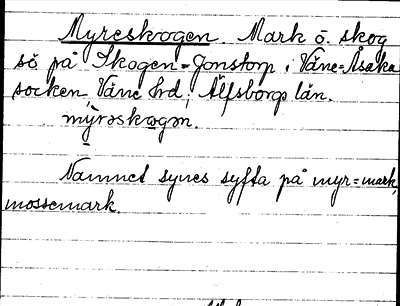 Myreskogen. Mark o. skog
sö på Skogen=Jonstorp i Väne=Åsaka
socken Väne hrd, Älfsborgs län.
mỳrəskogən.
Namnet synes syfta på myr=mark,
mossemark.